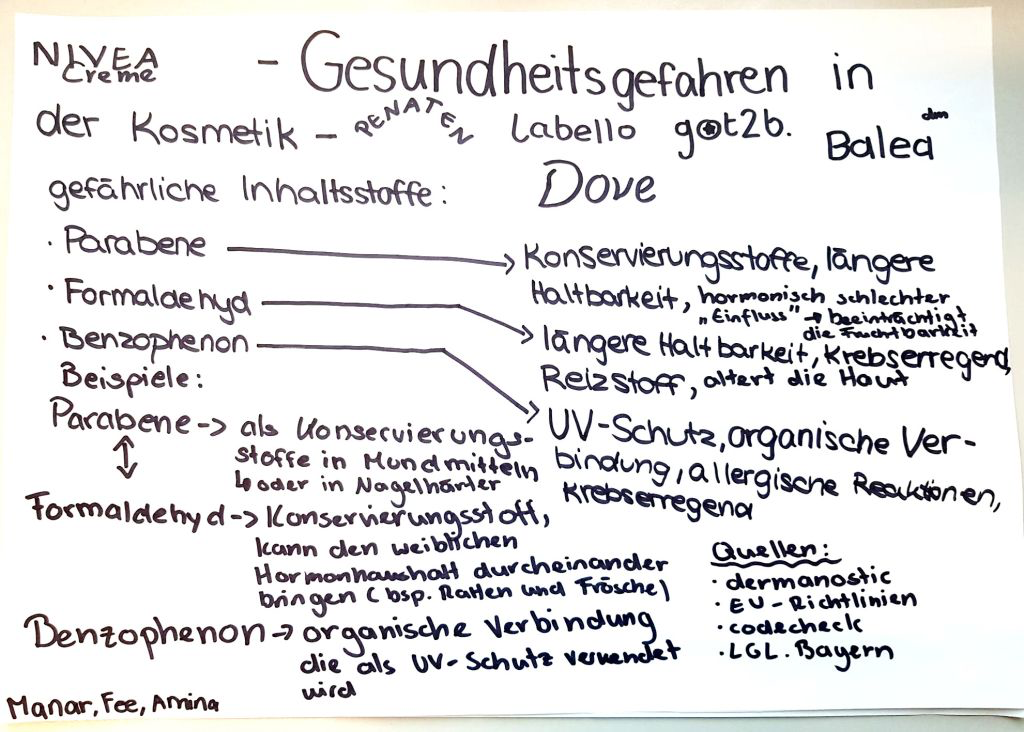 NIVEA
Creme
- Gesundheitsgefahren in
der Kosmetik - PENATEN Labello got2b. Balea dm
gefährliche Inhaltsstoffe: Dove
· Parabene → Konservierungsstoffe, längere
Haltbarkeit, hormonisch schlechter
„Einfluss" → beeinträchtigt
die Fruchtbarkeit
· Formaldehyd → längere Haltbarkeit, Krebserregend,
Reizstoff, altert die Haut
· Benzophenon → UV-Schutz, organische Ver-
bindung, allergische Reaktionen,
Krebserregend
Beispiele:
Parabene -> als Konservierungs-
stoffe in Mundmitteln
↳ oder in Nagelhärter
↕
Formaldehyd -> Konservierungsstoff,
kann den weiblichen
Hormonhaushalt durcheinander
bringen (bsp. Ratten und Frösche)
Benzophenon -> organische Verbindung
die als UV-Schutz verwendet
wird
Quellen:
· dermanostic
· EU-Richtlinien
· codecheck
· LGL. Bayern
Manar, Fee, Amina